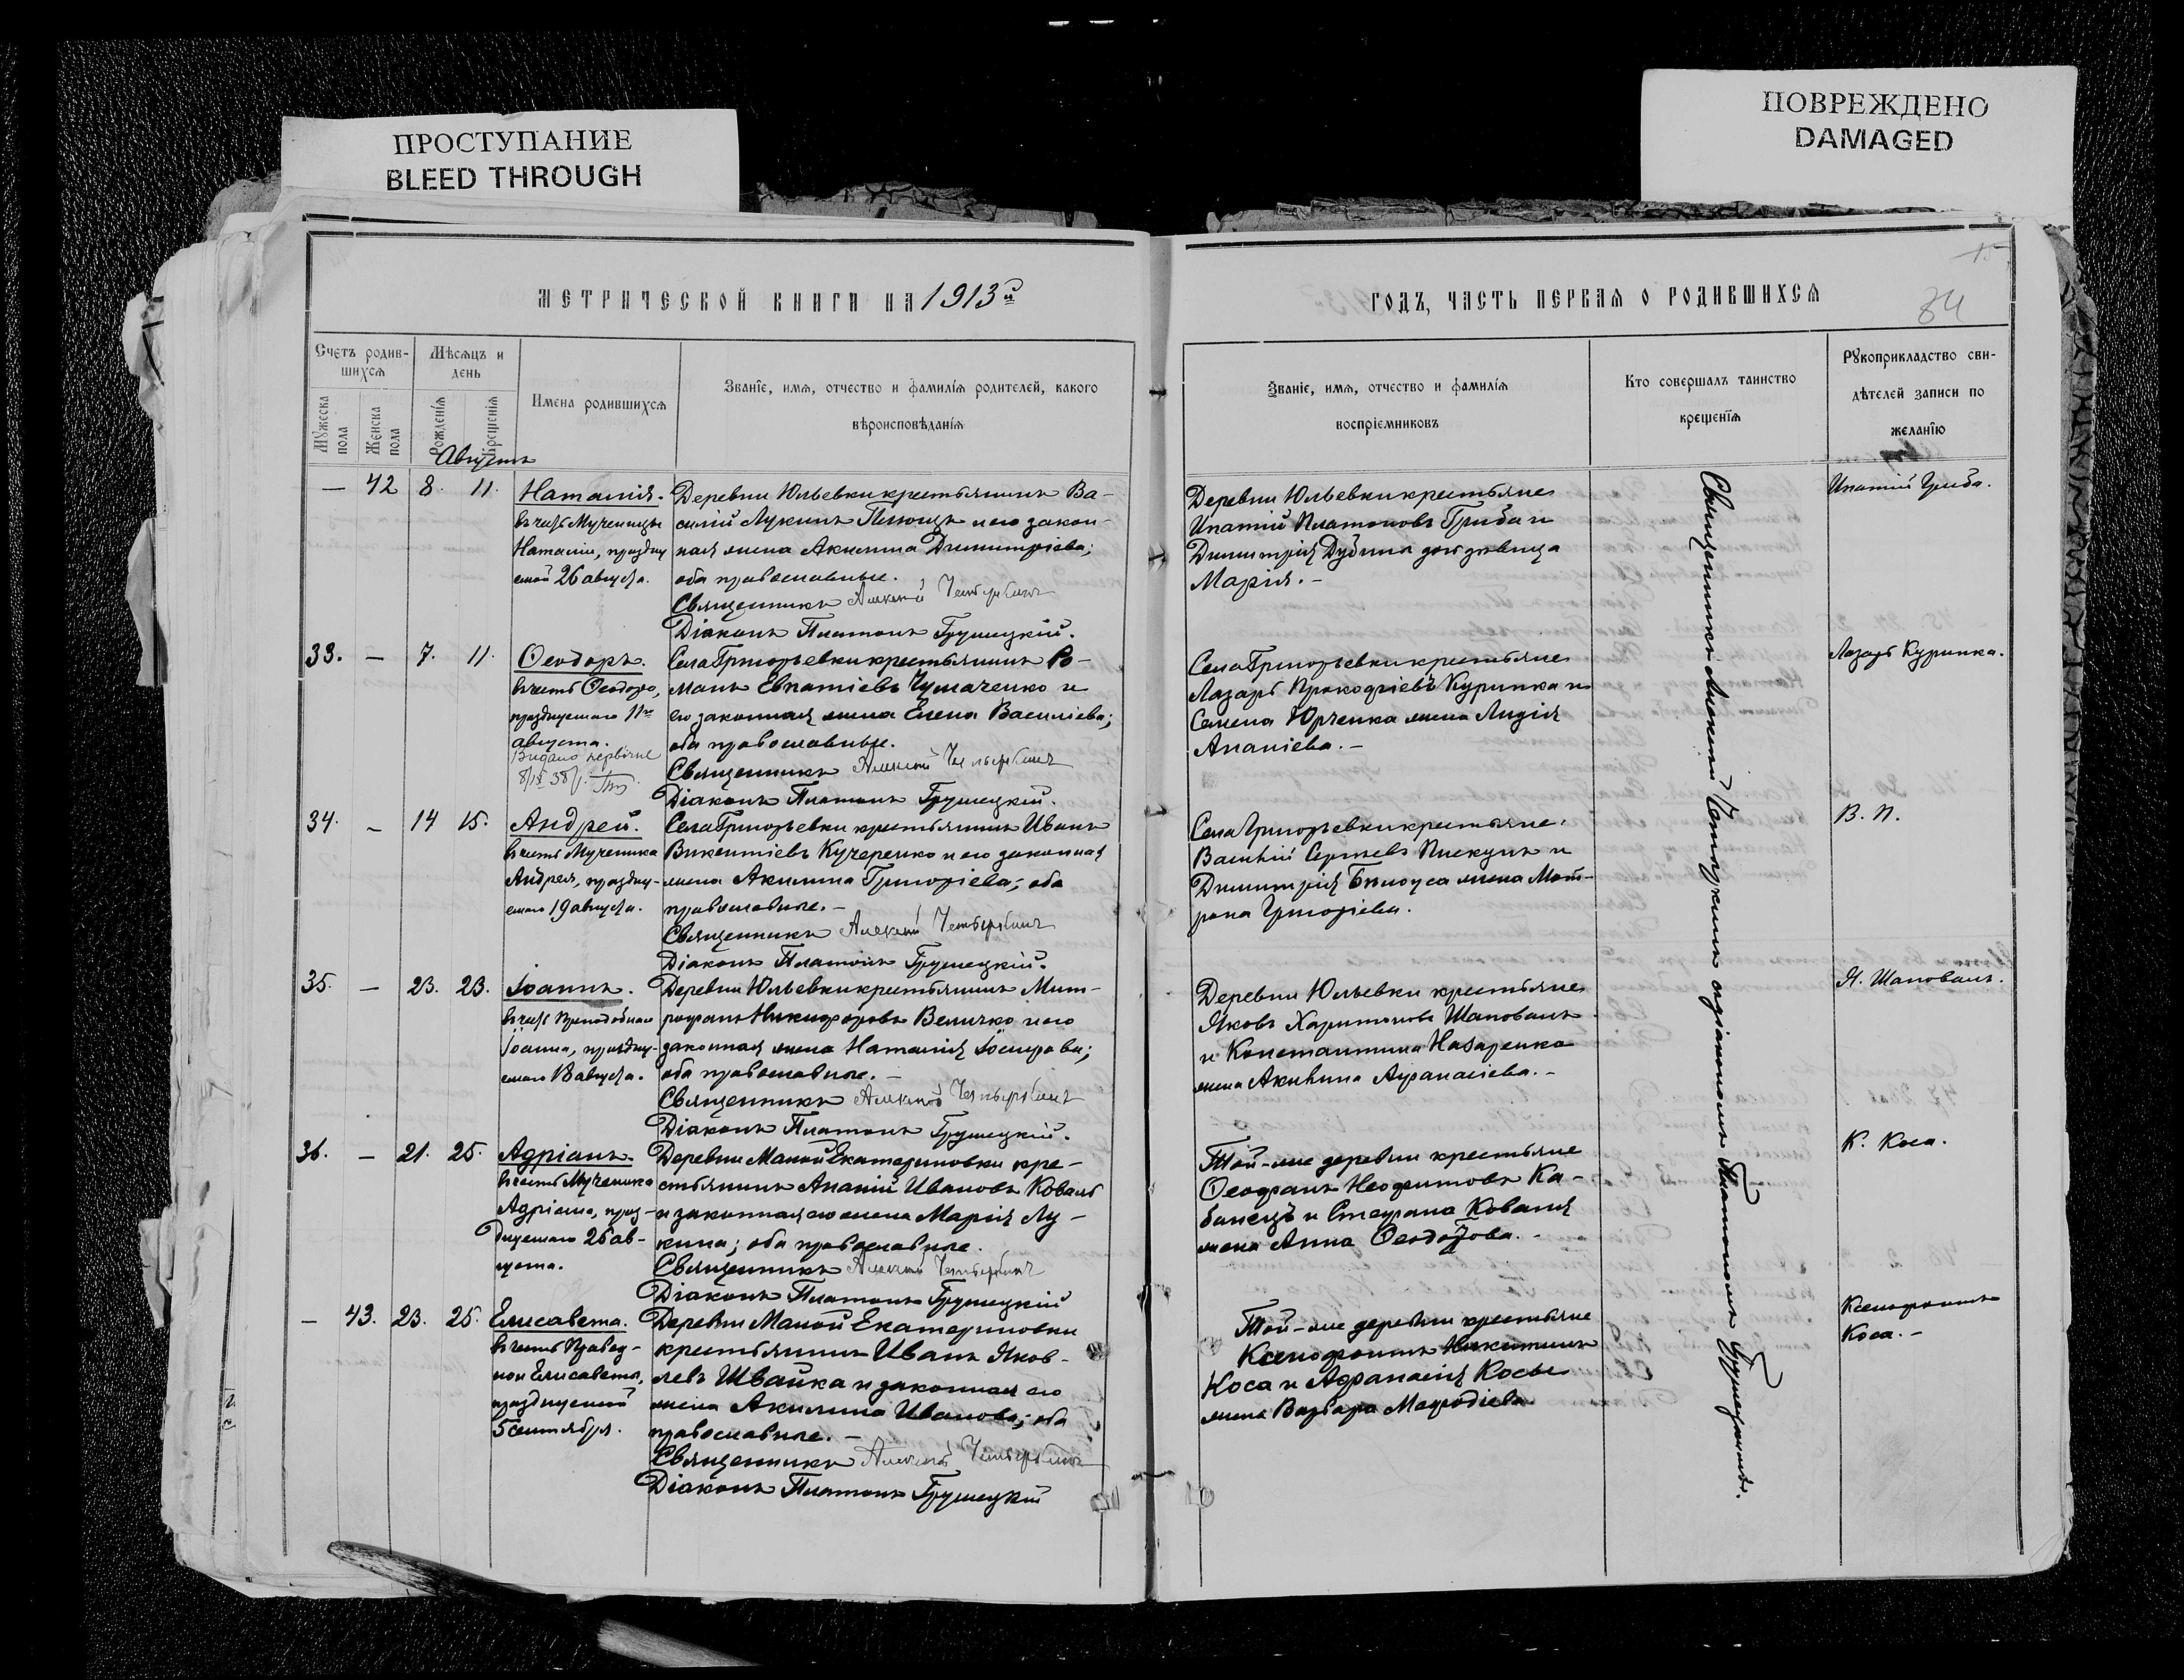 ПРОСТУПАНИЕ
BLEED THROUGH
ПОВРЕЖДЕНО
DAMAGED
МЕТРИЧЕСКОЙ КНИГИ НА 1913й
Счетъ родив-
шихся
Мѣсяцъ и
день
Мужеска пола
Женска пола
Рожденія
Крещенія
Имена родившихся
Званіе, имя, отчество и фамилія родителей, какого
вѣроисповѣданія
Августъ
— 42 8. 11. Наталія. Деревни Юльевки крестьянинъ Ва-
въ честь Мученицы силій Лукинъ и его закон-
Наталіи, праздну ная жена Акилина Димитріева;
емой 26 августа. оба православные.
Священникъ Алексій
Діаконъ Платонъ Грушецкій.
33. — 7. 11. Ѳеодоръ. Села Григорьевки крестьянинъ Ро-
въ честь Ѳеодора, манъ Евпатіевъ Чумаченко и
празднуемаго 11го его законная жена Елена Василіева;
августа. оба православные.
Видано первичне
8/IX 38 Священникъ Алексій
Діаконъ Платонъ Грушецкій.
34. — 14 15. Андрей. Села Григорьевки крестьянинъ Иванъ
въ честь Мученика Викентіевъ Кучеренко и его законная
Андрея, праздну- жена Акилина Григоріева; оба
емаго 19 августа. православные.-
Священникъ Алексій
Діаконъ Платонъ Грушецкій.
35. — 23. 23. Іоаннъ. Деревни Юльевки крестьянинъ Мит-
въ честь Преподобнаго рофанъ Никифоровъ Величко и его
Іоанна, праздну- законная жена Наталія Іосифова;
емаго 18 августа. оба православные.-
Священникъ Алексій
Діаконъ Платонъ Грушецкій.
36. — 21. 25. Адріанъ. Деревни Малой Екатериновки кре-
въ честь Мученика стьянинъ Ананій Ивановъ Коваль
Адріана, праз- и законная его жена Марія Лу-
днуемаго 26 ав- кина; оба православные.
густа. Священникъ Алексій
Діаконъ Платонъ Грушецкій
— 43. 23. 25. Елисавета. Деревни Малой Екатериновки
въ честь Правед- крестьянинъ Иванъ Яков-
ной Елисаветы, левъ Швайка и законная его
празднуемой жена Акилина Иванова; оба
5 сентября. православные.-
Священникъ Алексій
Діаконъ Платонъ Грушецкій
ГОДЪ, ЧАСТЬ ПЕРВАЯ О РОДИВШИХСЯ
84
Званіе, имя, отчество и фамилія
воспріемниковъ
Кто совершалъ таинство
крещенія
Рукоприкладство сви-
дѣтелей записи по
желанію
Деревни Юльевки крестьяне Ипатій Гриба.
Ипатій Платоновъ Гриба и
Димитрія Дубины дочь дѣвица
Марія.-
Села Григорьевки крестьяне Лазарь Куринка.
Лазарь Прокофіевъ Куринка и
Семена Юрченка жена Лидія
Ананіева.-
Села Григорьевки крестьяне: В. П.
Василій Сергѣевъ Пискунъ и
Димитрія Бѣлоуса жена Мат-
рона Григоріева.
Деревни Юльевки крестьяне Я. Шаповалъ.
Яковъ Харитоновъ Шаповалъ
и Константина Назаренка
жена Акилина Аѳанасіева.-
Той-же деревни крестьяне К. Коса.
Ѳеофанъ Неофитовъ Ка-
банецъ и Стефана Коваля
жена Анна Ѳеодотова.-
Той-же деревни крестьяне Ксенофонтъ
Ксенофонтъ Никитинъ Коса.-
Коса и Аѳанасія Косы
жена Варвара Меѳодіева.
Священникъ Алексій съ діакономъ Платономъ Грушецкимъ.